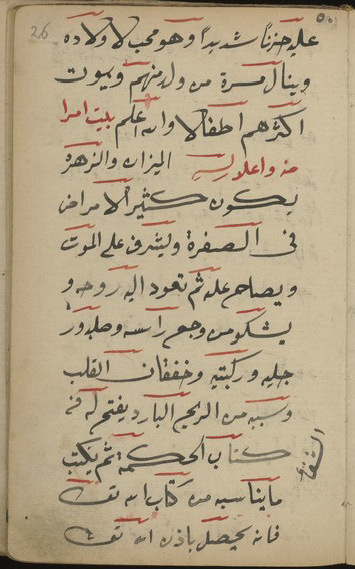 عليه حزنا شديدا وهو محب لاولاده
وينال مسرة من ولد منهم ويموت
اكثرهم اطفالا والله اعلم بيت امرا
منه واعلاله الميزان والزهرة
يكون كثير الامراض
فى الصفرة ويشرف على الموت
ويصاح عليه ثم تعود اليه روحه و
يشكو من وجع راسه وصدور
جليه وركبتيه وخفقان القلب
وسببه من الريح البارد يفتح له فى
كتاب الحكمة ثم يكتب
الشفا
ما يناسبه من كتاب الله تعا
فانه يحصل باذن الله تعا
26